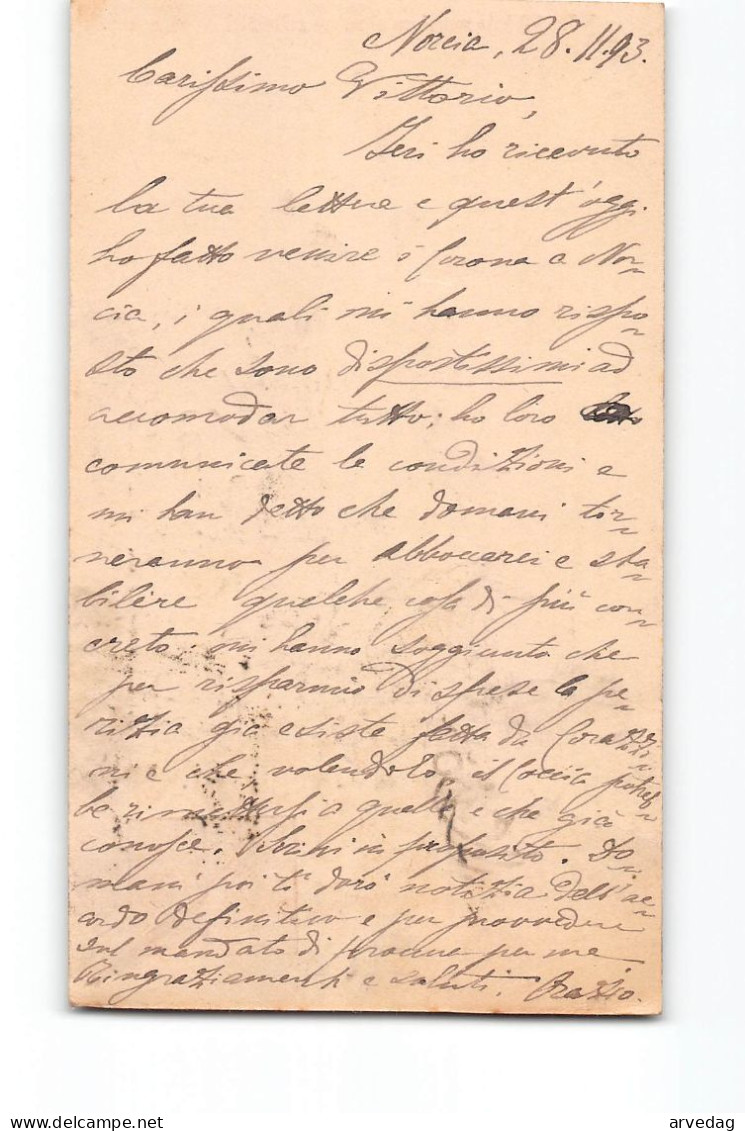 Norcia, 28.11.93.
Carissimo Vittorio,
Ieri ho ricevuto
la tua lettera e quest'oggi
ho fatto venire i Corona a Nor-
cia, i quali mi hanno rispo-
sto che sono dispostissimi ad
accomodar tutto; ho loro
comunicate le condizioni e
mi han detto che domani tor-
neranno per abboccarci e sta-
bilire qualche cosa di più con-
creto: mi hanno soggiunto che
per risparmio di spese la pe-
rizia già esiste fatta da Corazzi-
ni e che, volendolo il Coccia potreb-
be rimettersi a quella e che già
conosce. Scrivi in proposito. Do-
mani poi ti darò notizia dell'ac-
cordo definitivo e per provvedere
sul mandato di procura per me
Ringraziamenti e saluti. Orazio.
www.delcampe.net
arvedag